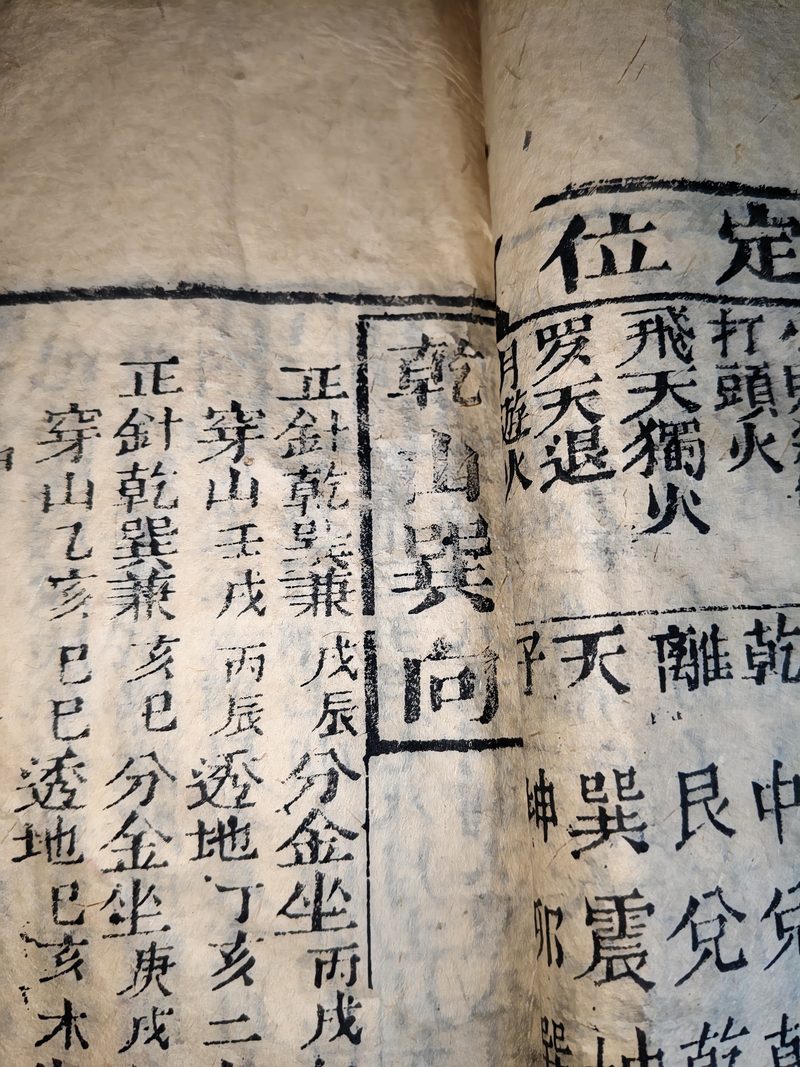 定位
打頭火
飛天獨火
罗天退
月遊火
乾中兌
離艮兌乾
天巽震坤
坤卯巽
乾山巽向
正針乾巽兼戌辰分金坐丙戌
穿山壬戌丙辰透地丁亥二
正針乾巽兼亥巳分金坐庚戌
穿山乙亥巳巳透地巳亥木